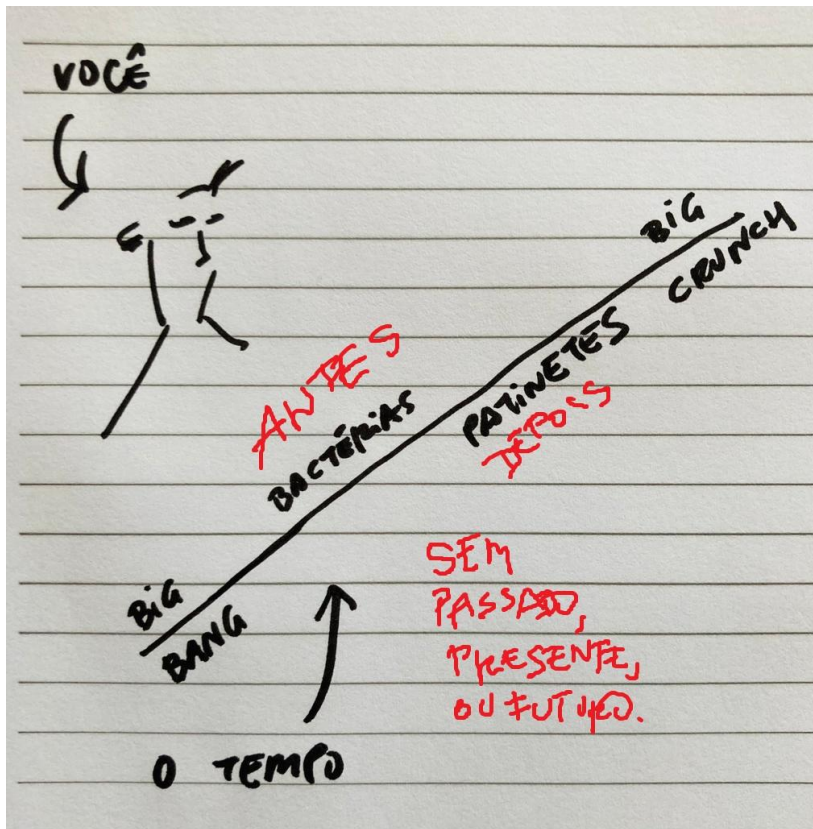 VOCÊ
BIG
CRUNCH
ANTES
BACTÉRIAS
PATINETES
DEPOIS
BIG
BANG
SEM
PASSADO,
PRESENTE,
OU FUTURO.
O TEMPO